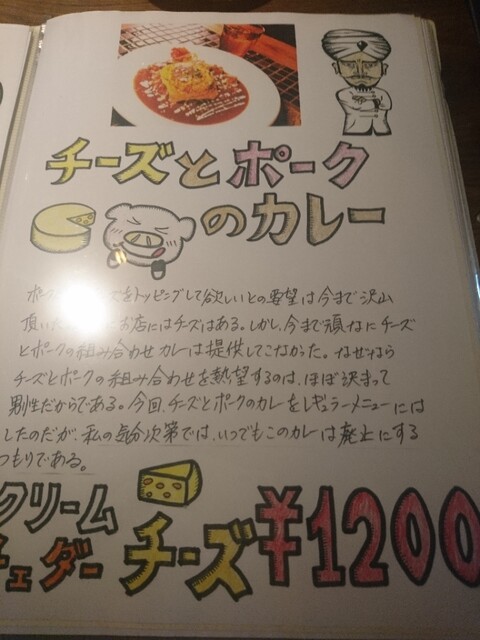 チーズとポーク
のカレー
をトッピングして欲しいとの要望は今まで沢山
頂いた お店にはチーズはある。しかし、今まで頑なにチーズ
とポークの組み合わせカレーは提供してこなかった。なぜなら
チーズとポークの組み合わせを熱望するのは、ほぼ決まって
男性だからである。今回、チーズとポークのカレーをレギュラーメニューには
したのだが、私の気分次第では、いつでもこのカレーは廃止にする
つもりである。
クリーム
チェダー チーズ ¥1200